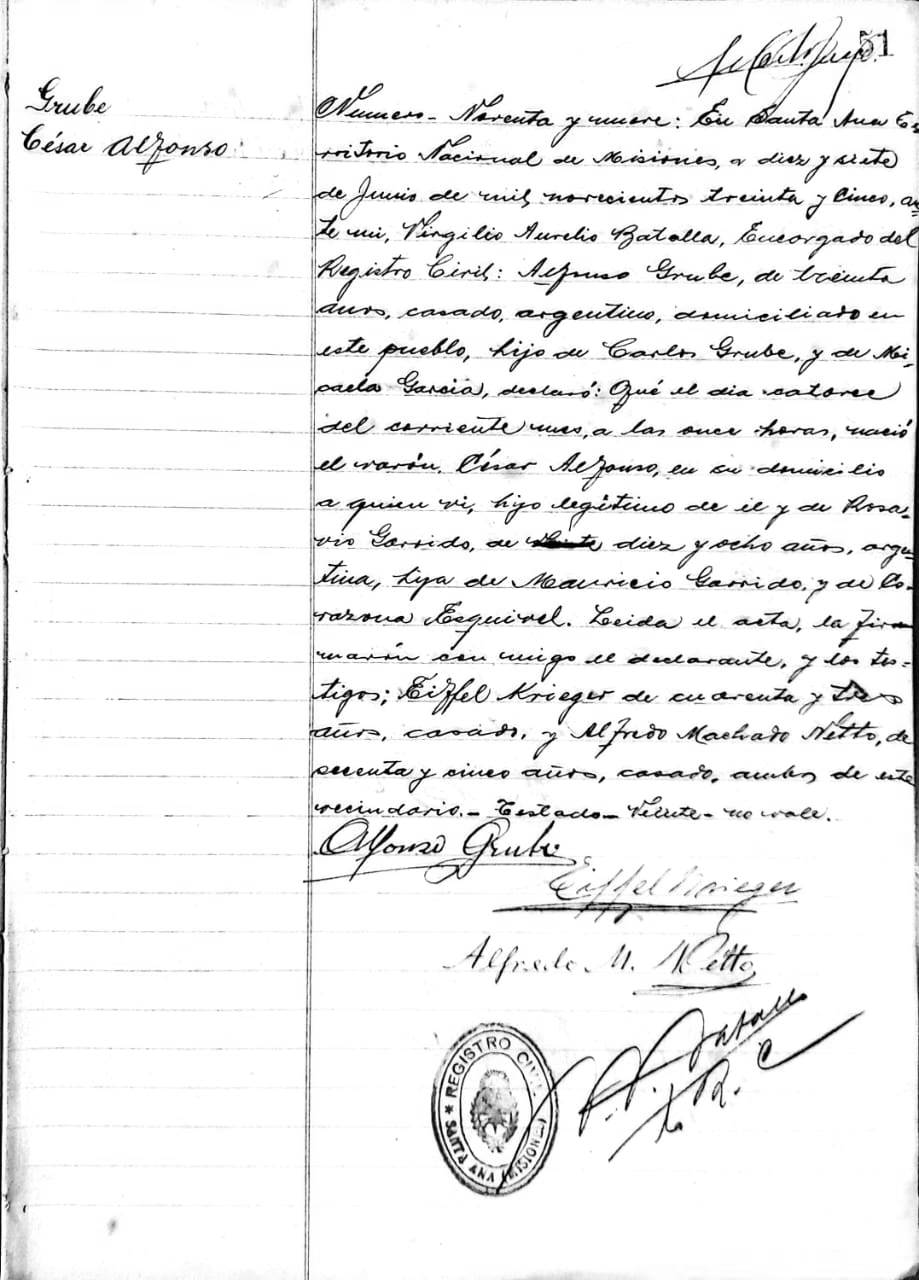 51
Grube
César Alfonso
Número - Noventa y nueve: En Santa Ana Te
rritorio Nacional de Misiones, a diez y siete
de Junio de mil novecientos treinta y cinco, an
te mi, Virgilio Aurelio Batalla, Encargado del
Registro Civil: Alfonso Grube, de treinta
años, casado, argentino, domiciliado en
este pueblo, hijo de Carlos Grube, y de Mi-
caela Garcia, declaró: Qué el dia catorce
del corriente mes, a las once horas, nació
el varón, César Alfonso, en su domicilio
a quien vi, hijo legítimo de él y de Rosa-
rio Garrido, de diez y ocho años, argen
tina, hija de Mauricio Garrido, y de Co-
razona Esquivel. Leida el acta, la fir
marón conmigo el declarante, y los tes-
tigos; Eiffel Krieger de cuarenta y tres
años, casado, y Alfredo Machado Netto, de
secenta y cinco años, casado, ambos de este
vecindario. - Testado - Veinte - no vale.
Alfonso Grube
Eiffel Krieger
Alfredo M. Netto
REGISTRO CIVIL
SANTA ANA (MISIONES)